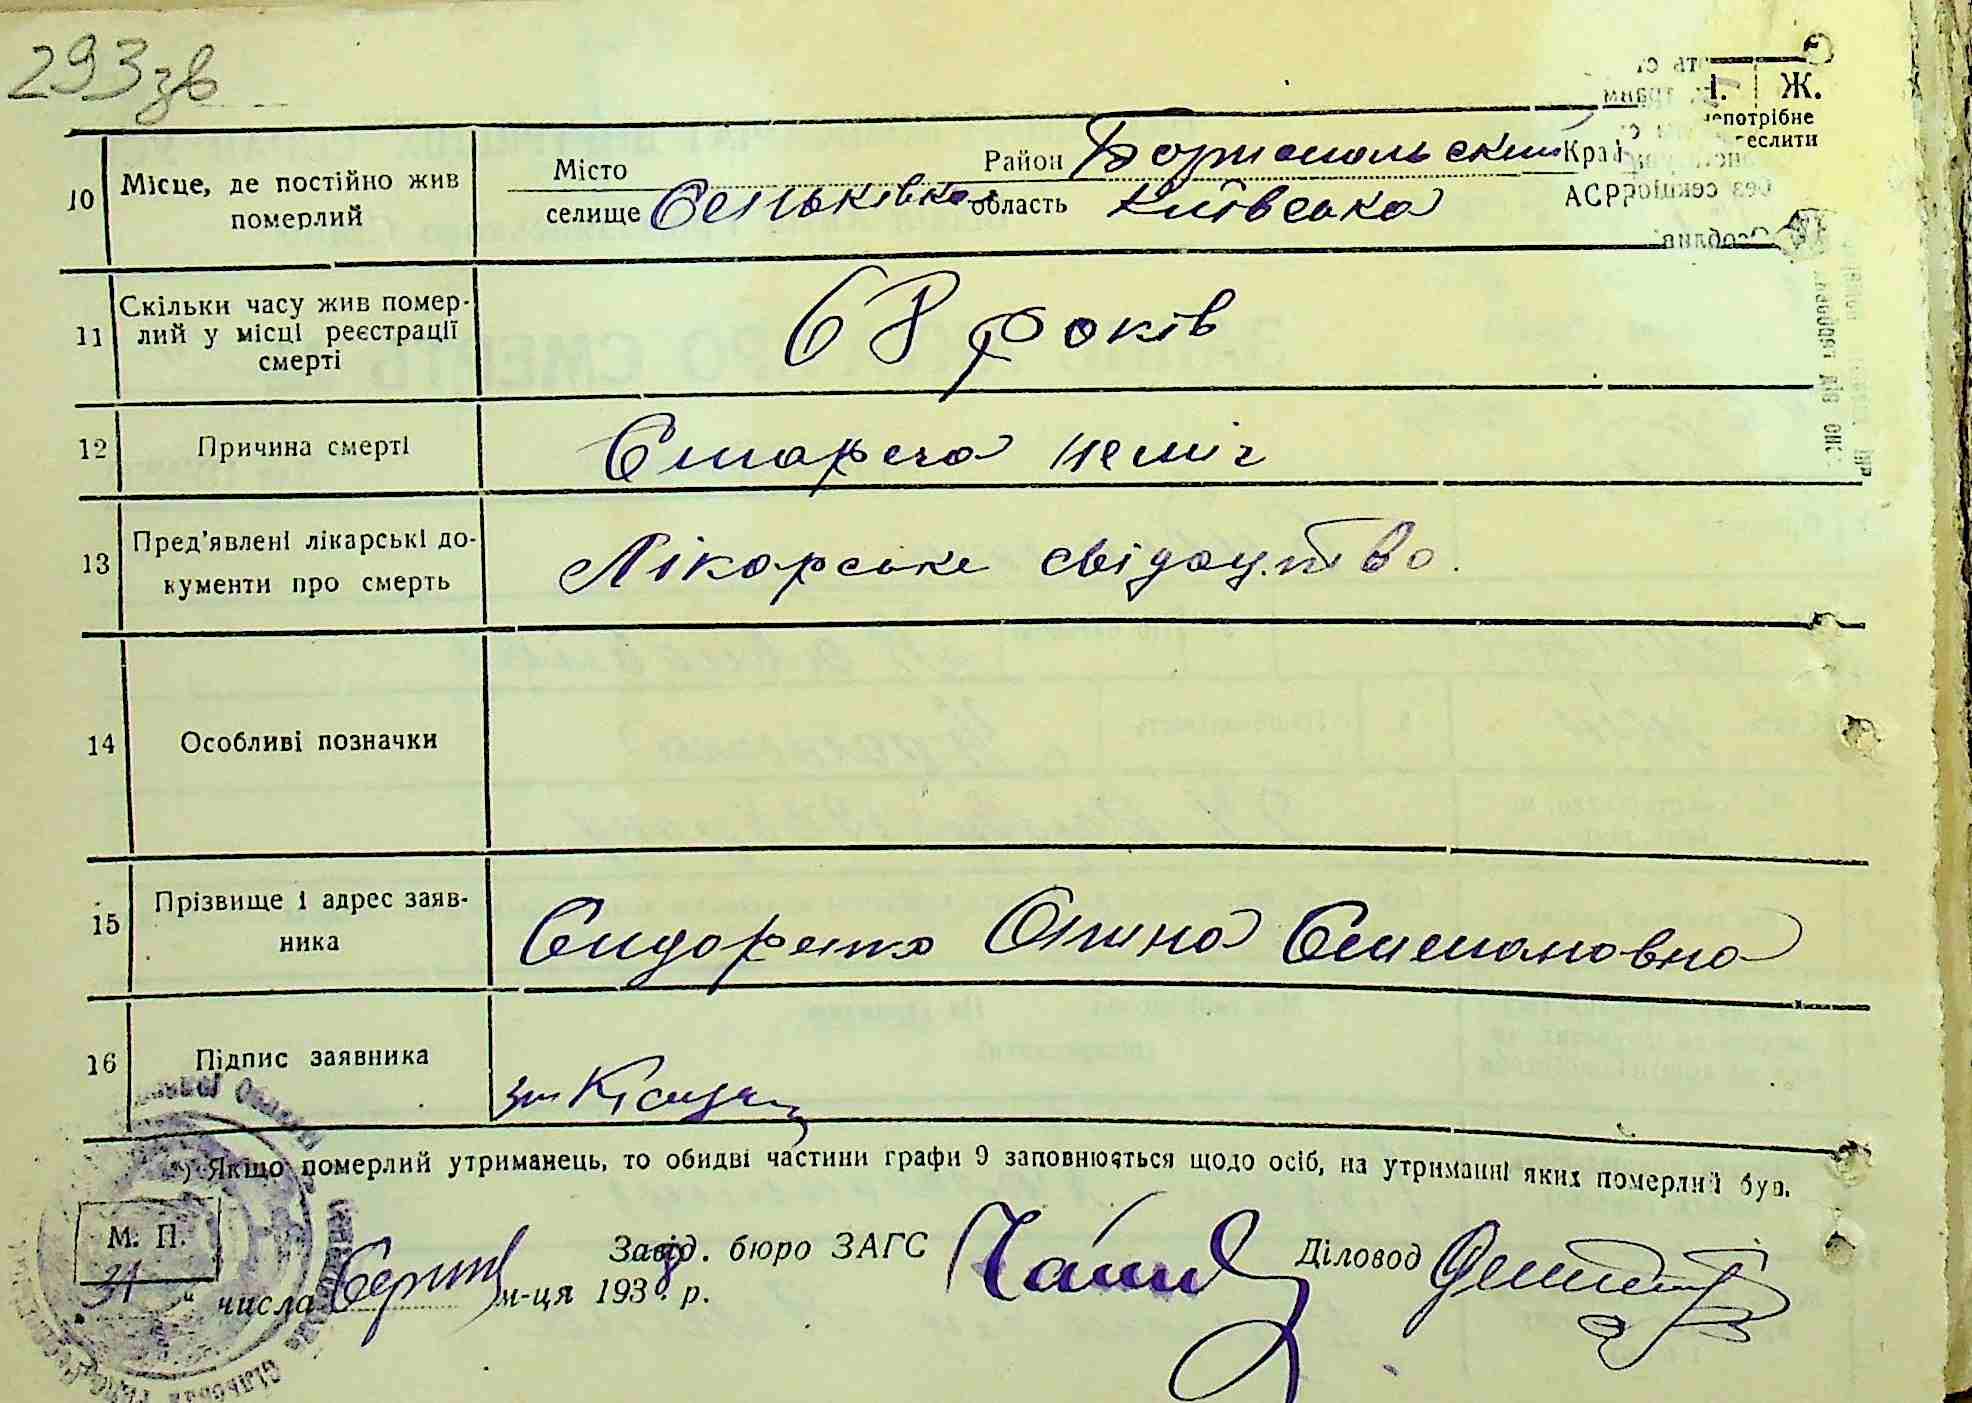 293зв
Ж.
потрібне
еслити
10 Місце, де постійно жив померлий
Місто Район Бориспольский Край
селище Сеньківка область Київська АСРР
11 Скільки часу жив помер-
лий у місці реєстрації
смерті
68 років
12 Причина смерті Стареча неміч
13 Пред'явлені лікарські до-
кументи про смерть
Лікарське свідоцтво.
14 Особливі позначки
15 Прізвище і адрес заяв-
ника
Сидоренко Олина Семеновна
16 Підпис заявника
*) Якщо померлий утриманець, то обидві частини графи 9 заповнюються щодо осіб, на утриманні яких померлий був.
М. П.
Завід. бюро ЗАГС Діловод
31 " числа Серпня м-ця 1938 р.